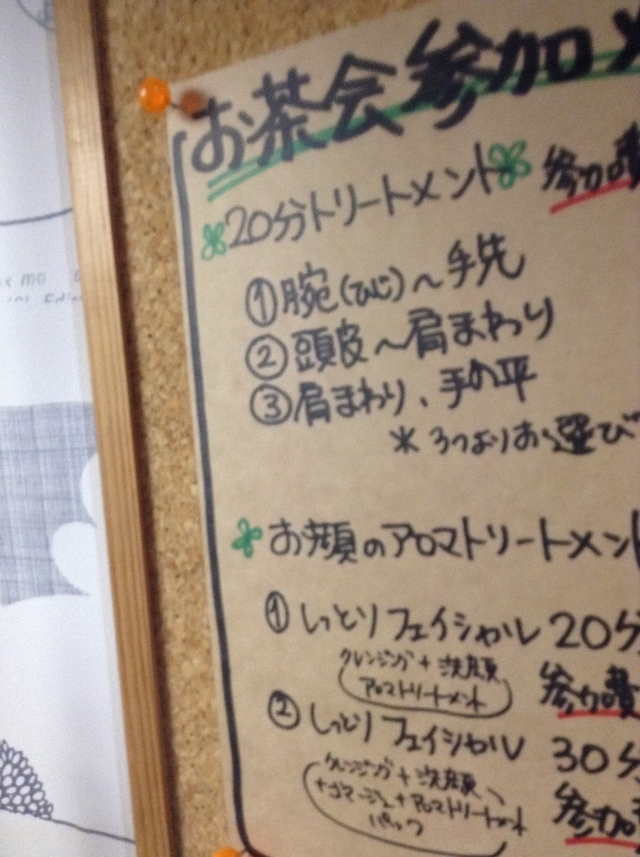 お茶会参加メ
20分トリートメント 参加費
①腕(ひじ)～手先
②頭皮～肩まわり
③肩まわり、手の平
※3つよりお選び
お顔のアロマトリートメント
①しっとりフェイシャル 20分
クレンジング+洗顔
アロマトリートメント
参加費
②しっとりフェイシャル 30分
クレンジング+洗顔
+ゴマージュ+アロマトリートメント
パック
参加費